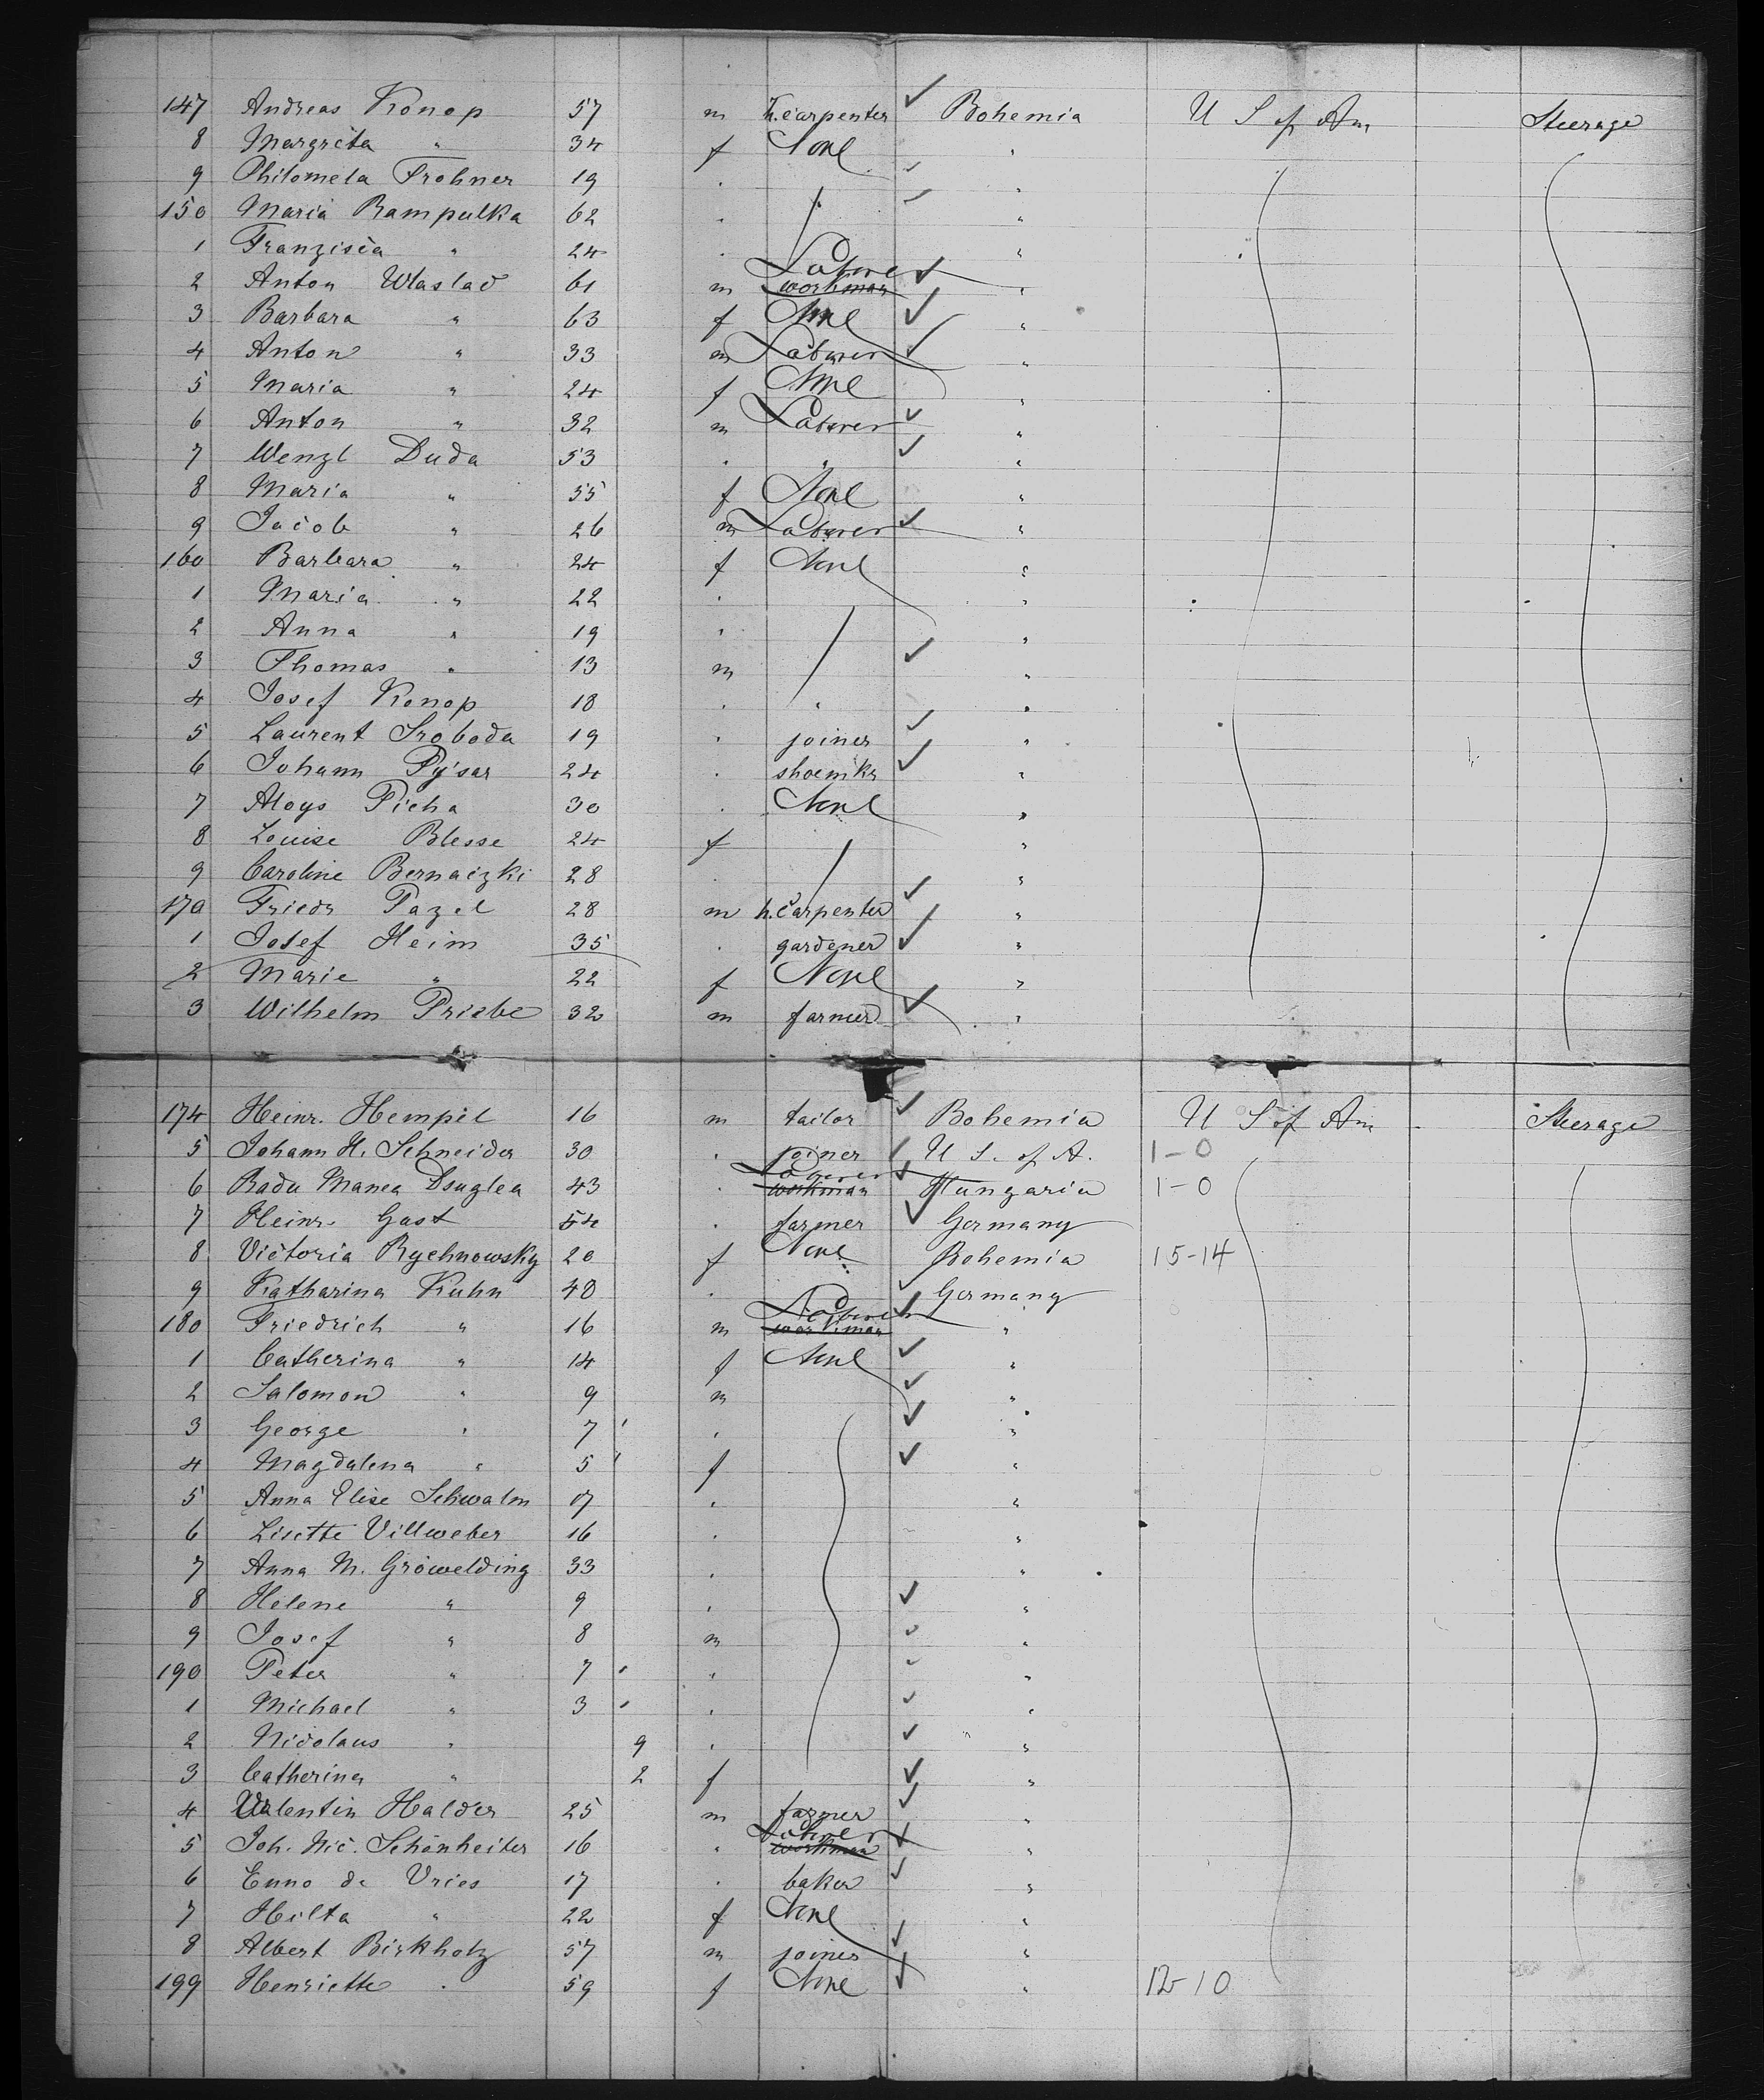 147 Andreas Konop 57 m h. carpenter ✓ Bohemia U S of Am Steerage
8 Margreta " 34 f None "
9 Philomela Frohner 19 " "
150 Maria Rampulka 62 " "
1 Franzisca " 24 " "
2 Anton Wlaslad 61 m Laborer workman ✓ "
3 Barbara " 63 f None ✓ "
4 Anton " 33 m Laborer ✓ "
5 Maria " 24 f None "
6 Anton " 32 m Laborer ✓ "
7 Wenzl Duda 53 " " ✓ "
8 Maria " 55 f None "
9 Jacob " 26 m Laborer ✓ "
160 Barbara " 24 f None "
1 Maria " 22 " "
2 Anna " 19 " "
3 Thomas " 13 m ✓ "
4 Josef Konop 18 " " "
5 Laurent Svoboda 19 " joiner ✓ "
6 Johann Pysar 24 " shoemkr ✓ "
7 Aloys Picha 30 " None "
8 Louise Blesse 24 f "
9 Caroline Bernaizki 28 " "
170 Friedr Pazel 28 m h. carpenter ✓ "
1 Josef Heim 35 " gardener ✓ "
2 Marie " 22 f None "
3 Wilhelm Priebe 32 m farmer ✓ "
174 Heinr. Hempel 16 m tailor ✓ Bohemia U S of Am Steerage
5 Johann H. Schneider 30 " joiner ✓ U S. of A. 1-0
6 Radu Manea Dsuglea 43 " Laborer workman ✓ Hungaria 1-0
7 Heinr. Gast 54 " farmer ✓ Germany
8 Victoria Rychnowsky 20 f None Bohemia 15-14
9 Katharina Kuhn 40 " ✓ Germany
180 Friedrich " 16 m Laborer workman ✓ "
1 Catherina " 14 f None ✓ "
2 Salomon " 9 m ✓ "
3 George " 7 " ✓ "
4 Magdalena " 5 f ✓ "
5 Anna Elise Schwalm 17 " "
6 Lisette Villweber 16 " "
7 Anna M. Gröwelding 33 " "
8 Helene " 9 " ✓ "
9 Josef " 8 m ✓ "
190 Peter " 7 " ✓ "
1 Michael " 3 " ✓ "
2 Nicolaus " 9 " ✓ "
3 Catherina " 2 f ✓ "
4 Valentin Halder 25 m farmer ✓ "
5 Joh. Nic. Schönheiter 16 " Laborer workman ✓ "
6 Enno de Vries 17 " baker ✓ "
7 Hilta " 22 f None "
8 Albert Birkholz 57 m joiner ✓ "
199 Henriette " 59 f None ✓ " 12-10